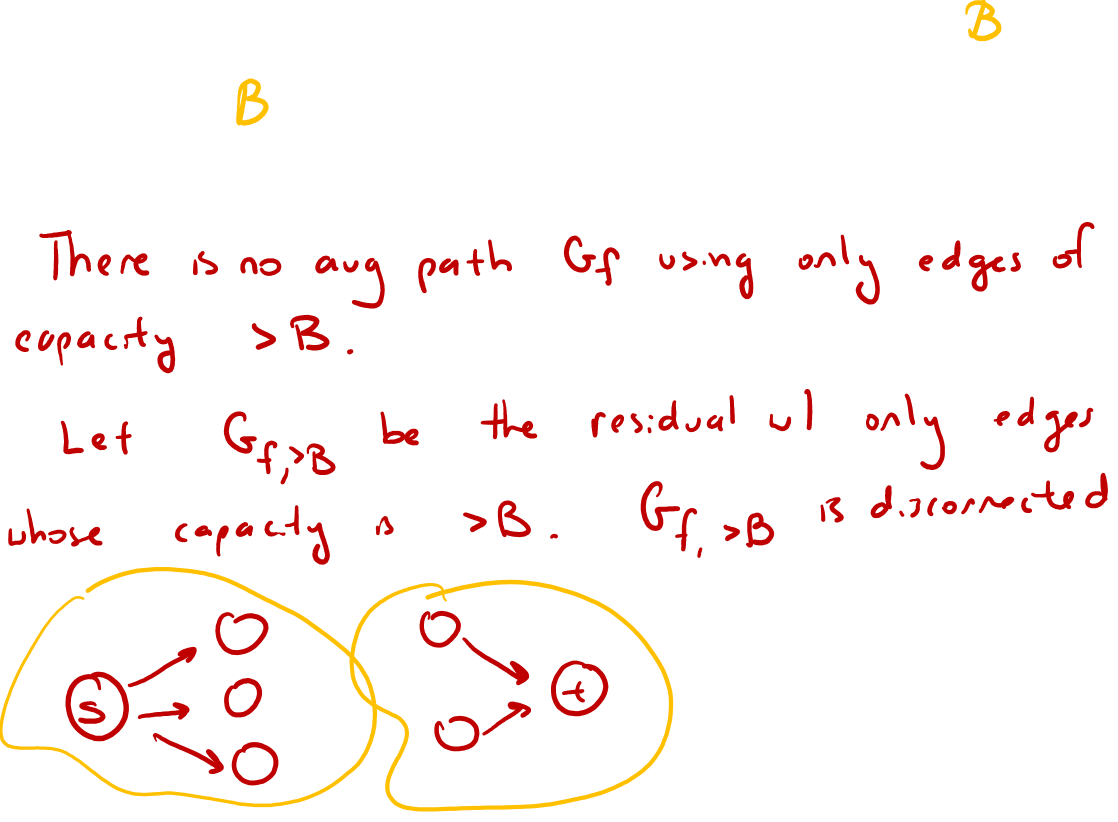 B
B
There is no aug path Gf using only edges of
capacity > B.
Let Gf,>B be the residual w/ only edges
whose capacity is >B. Gf,>B is disconnected
s
t